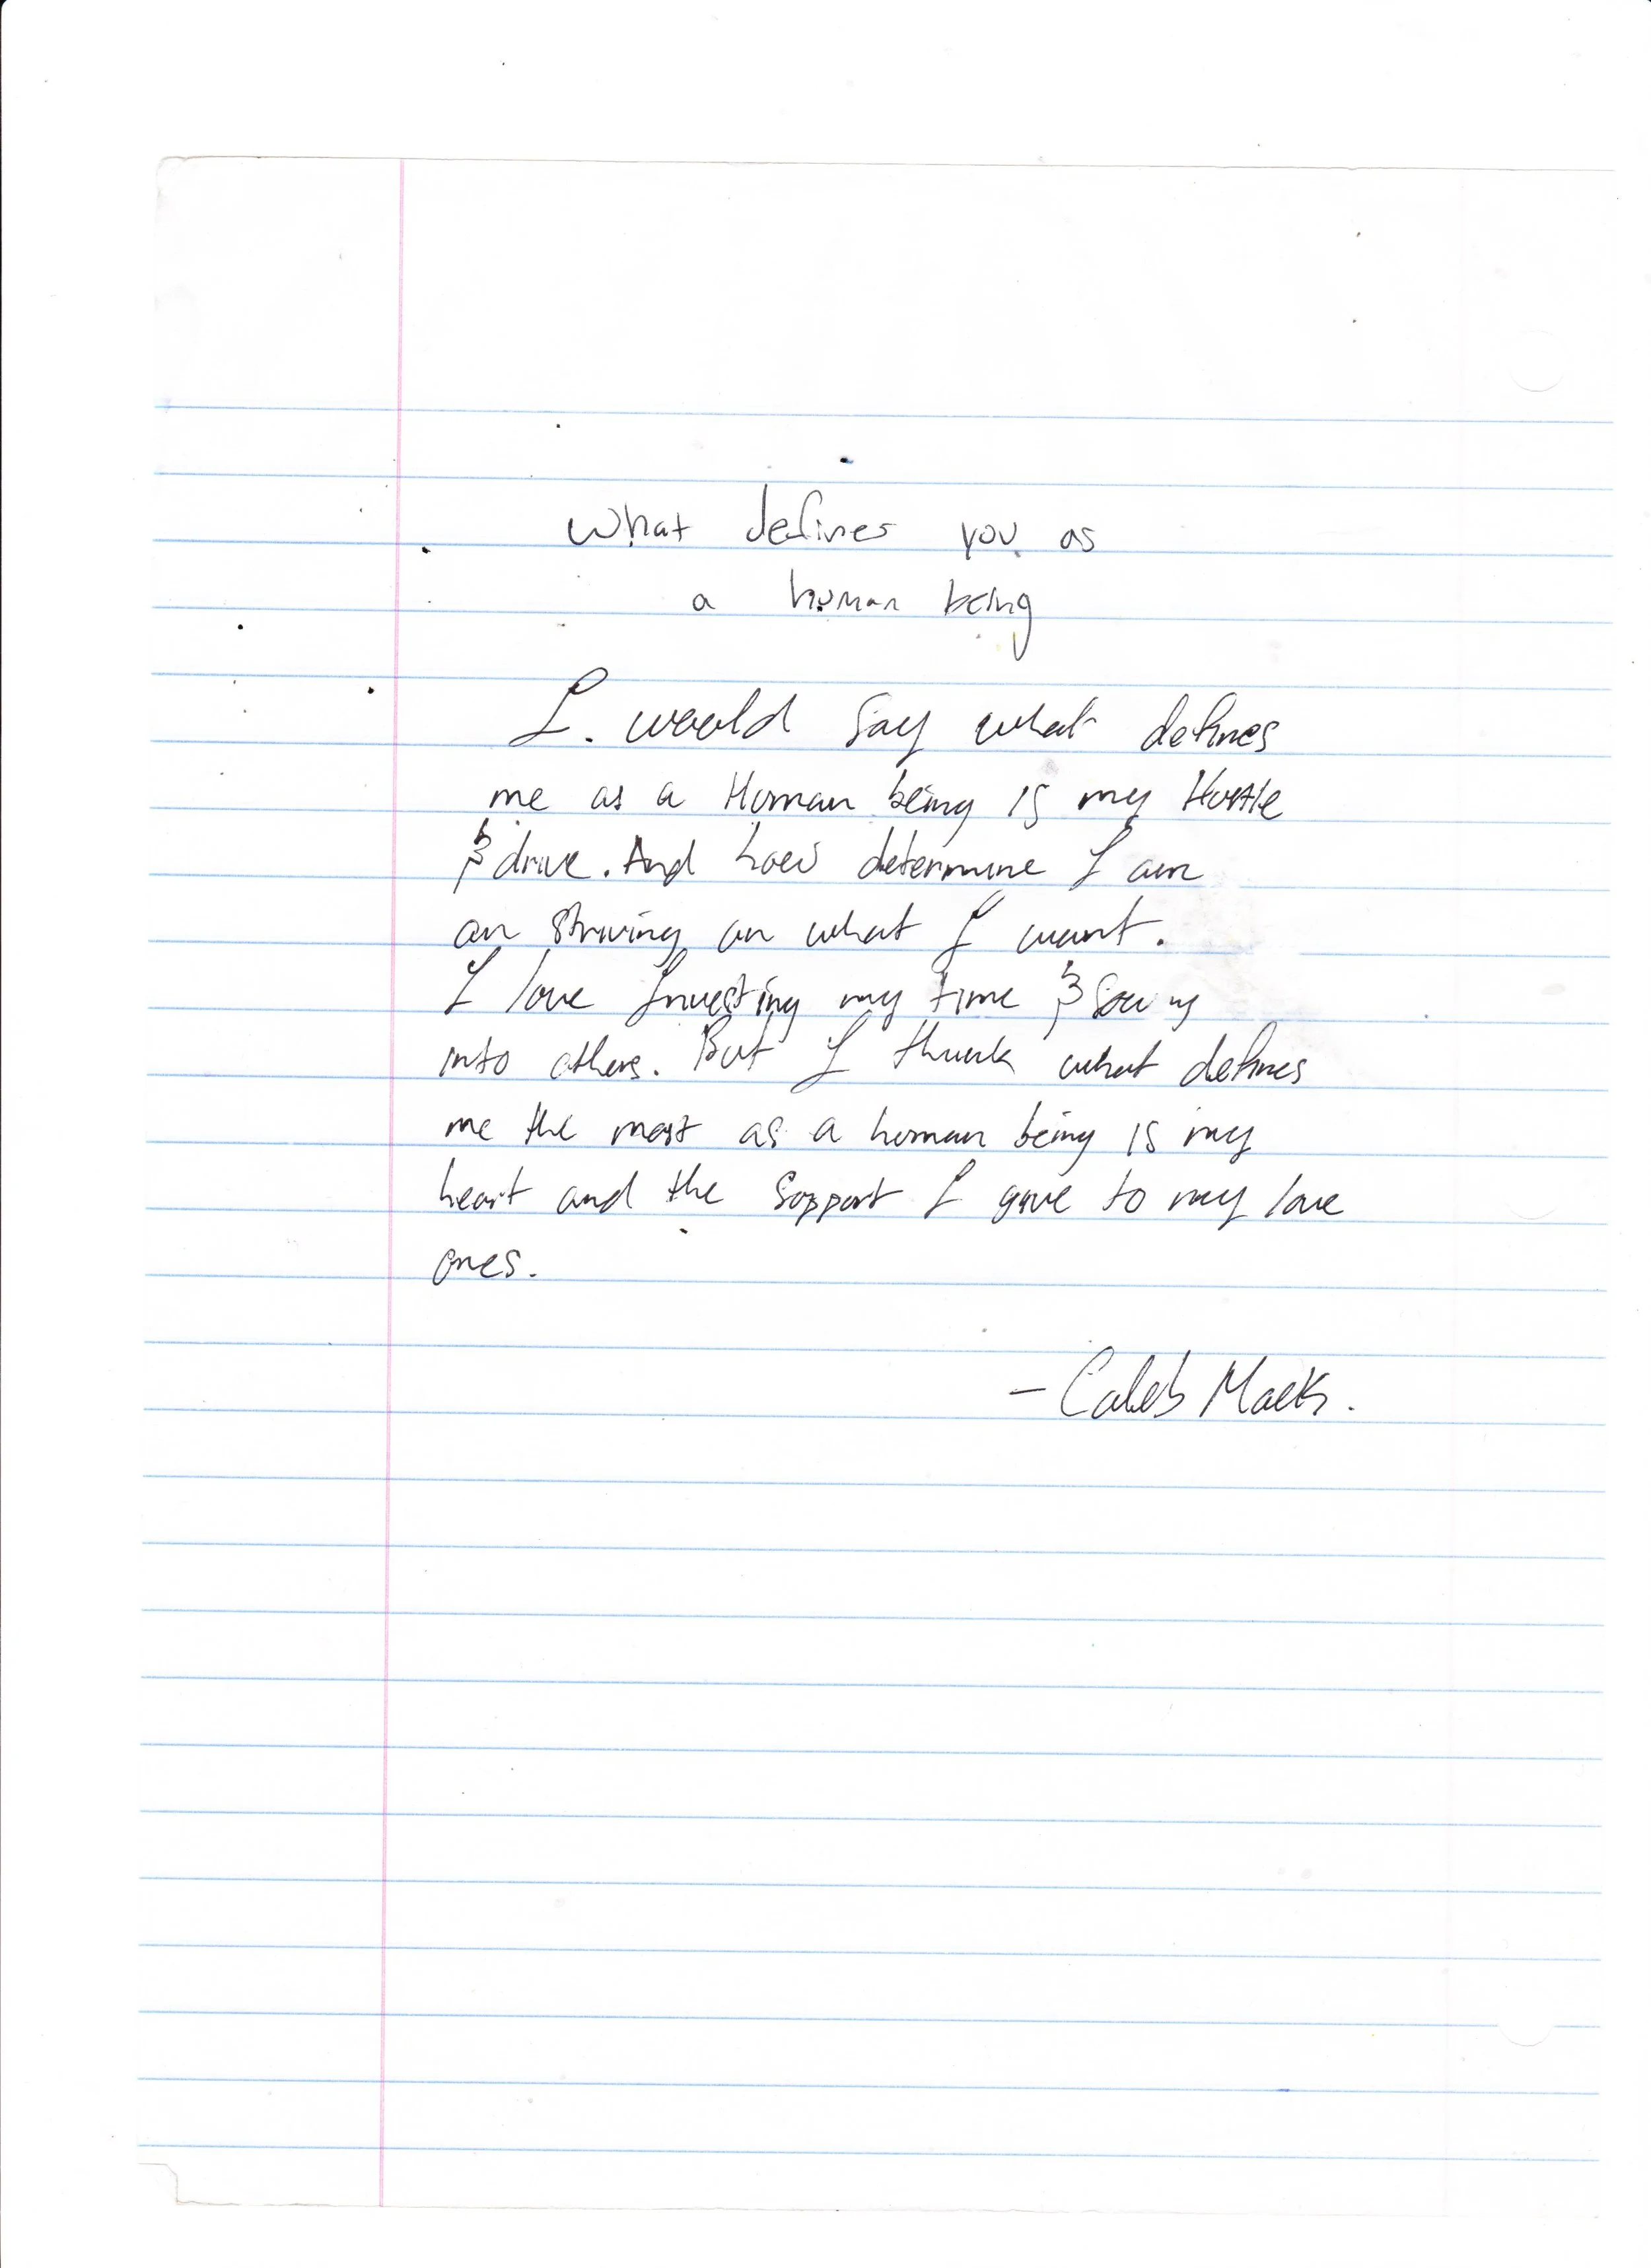 What defines you as
a human being
I. would say what defines
me as a Human being is my Hustle
& drive. And how determine I am
on striving on what I want.
I love Investing my time & Sowing
into others. But I think what defines
me the most as a human being is my
heart and the support I give to my love
ones.
- Caleb